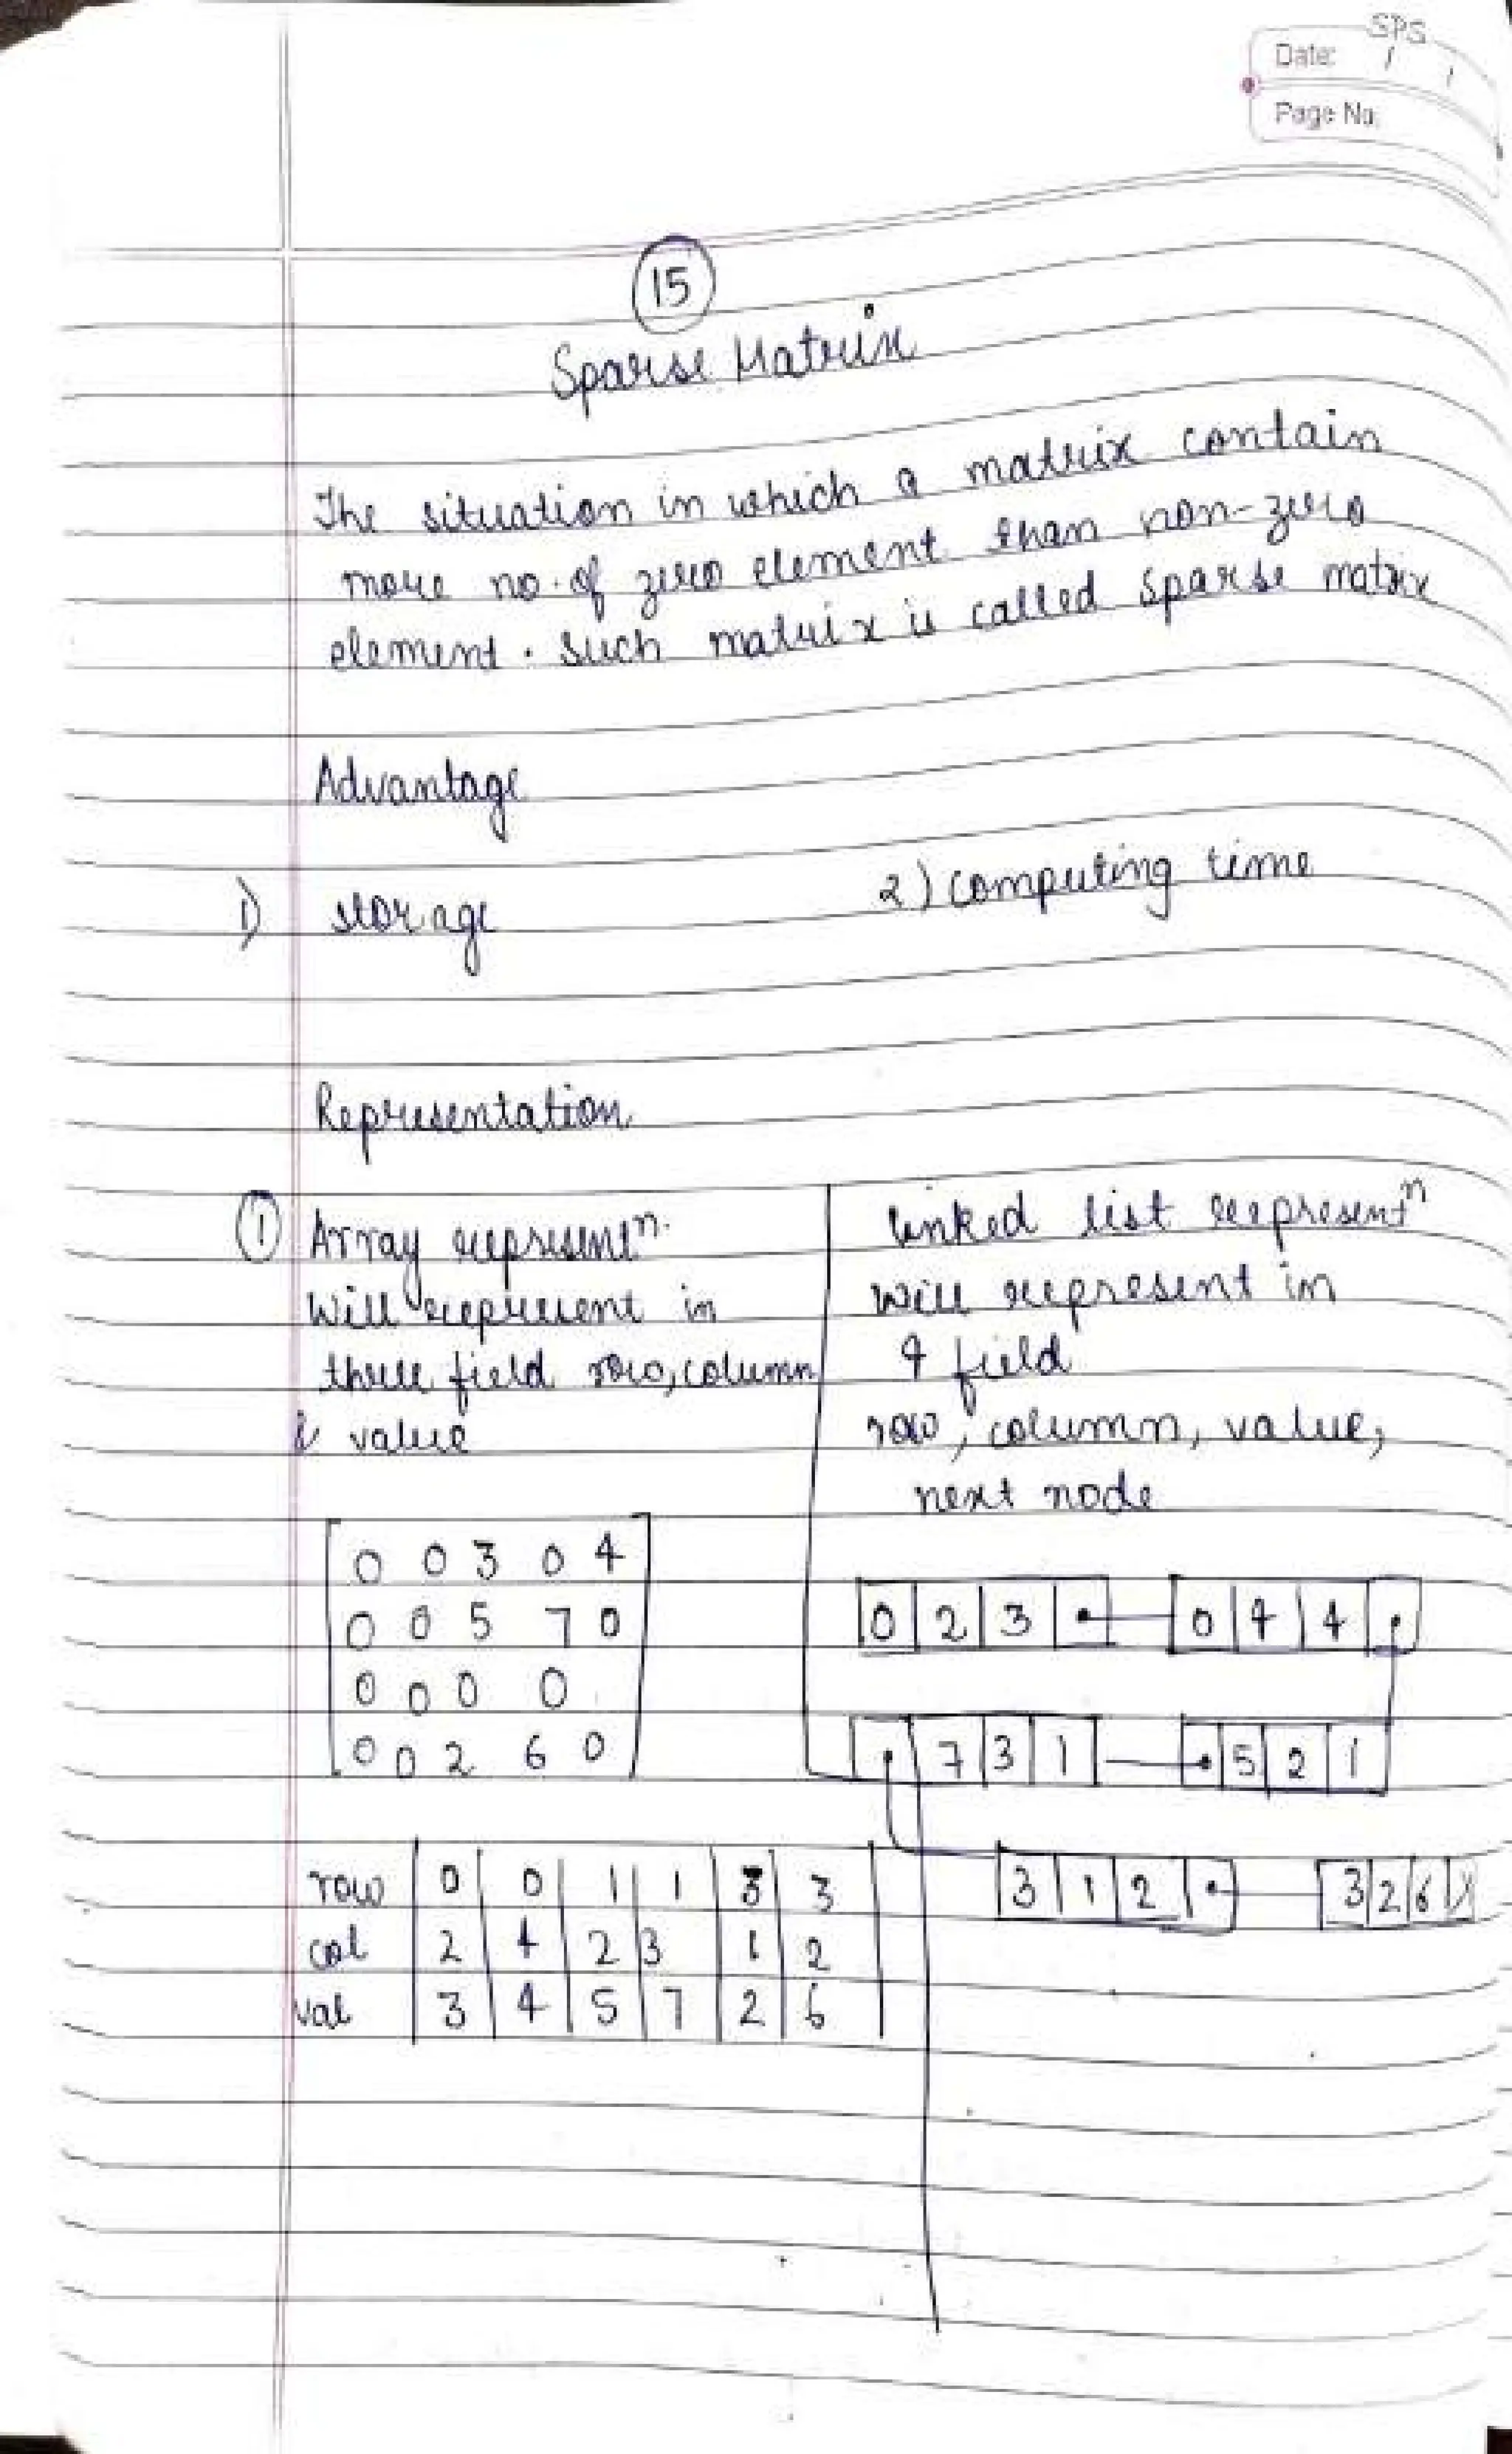 SPS
Date: / /
Page No.
15
Sparse Matrix
The situation in which a matrix contain
more no. of zero element than non-zero
element. Such matrix is called sparse matrix
Advantage
1) storage
2) computing time
Representation
① Array representⁿ.
Will represent in
three field row, column
& value
0 0 3 0 4
0 0 5 7 0
0 0 0 0
0 0 2 6 0
row 0 0 1 1 3 3
col 2 4 2 3 1 2
val 3 4 5 7 2 6
linked list representⁿ
will represent in
4 field
row, column, value,
next node
0 2 3 0 4 4
7 3 1 5 2 1
3 1 2 3 2 6